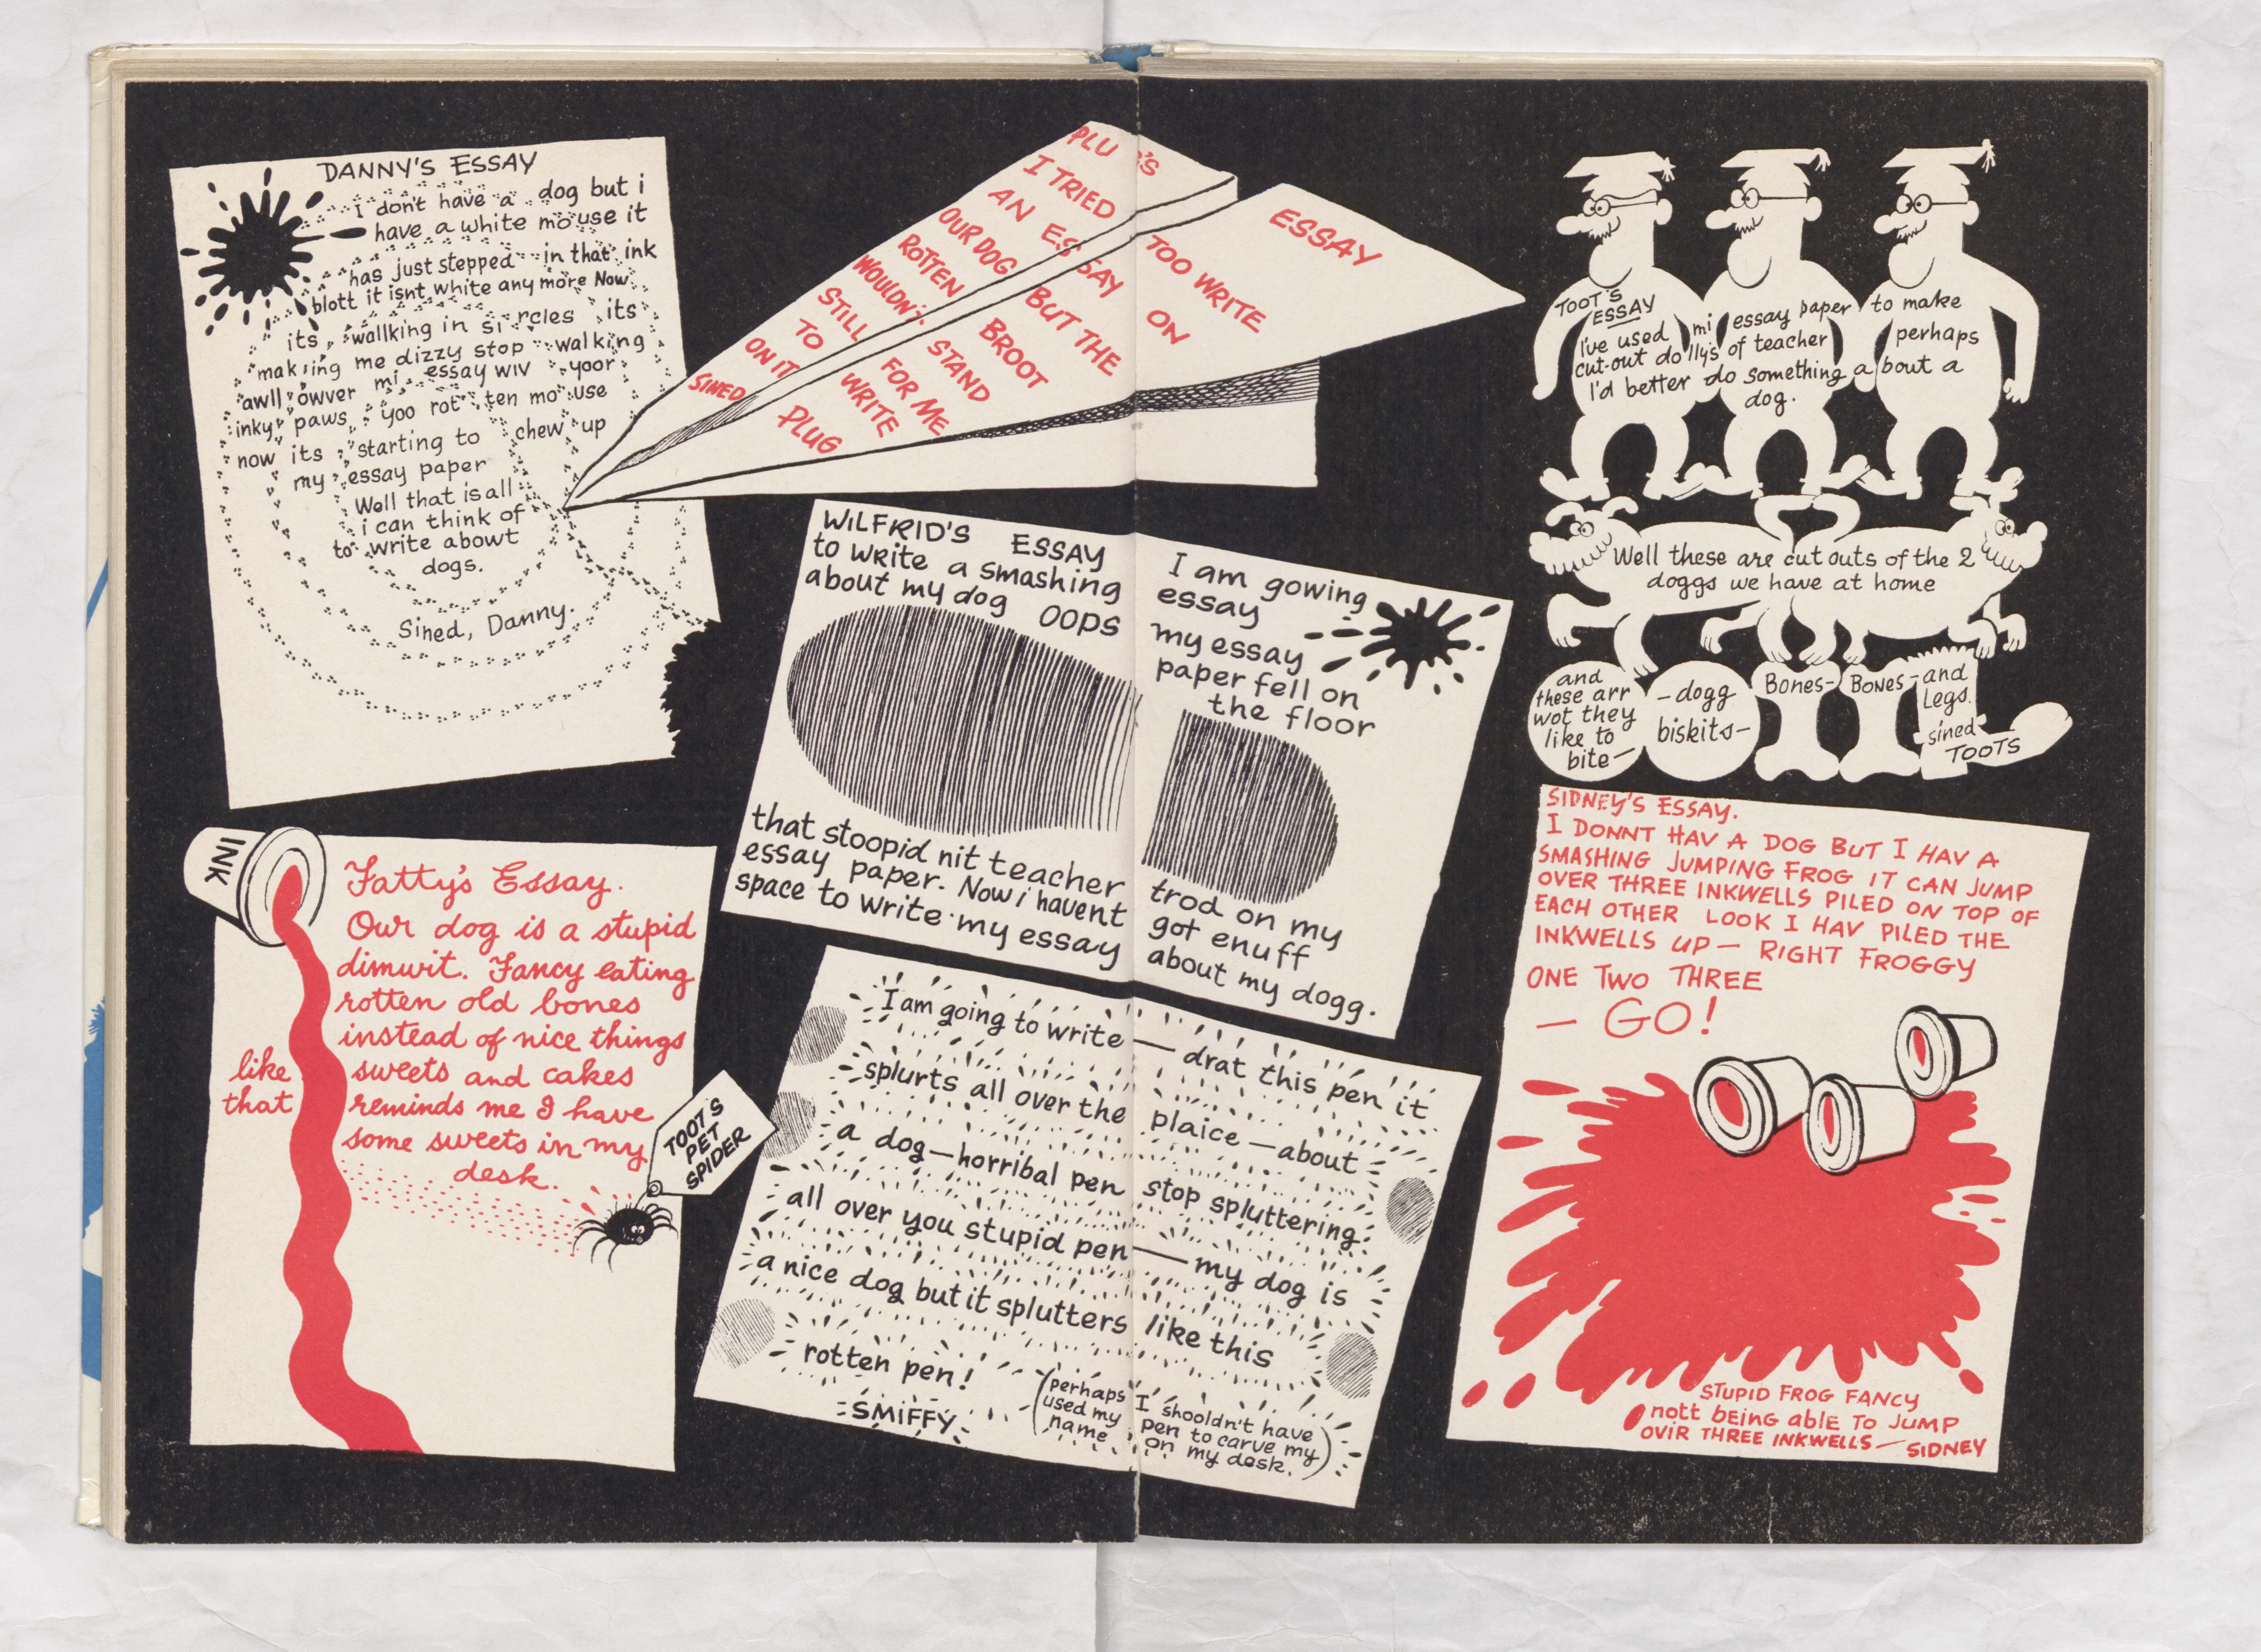 DANNY'S ESSAY
I don't have a dog but i
have a white mouse it
has just stepped in that ink
blott it isnt white any more Now
its wallking in sircles its
making me dizzy stop walking
awll owver mi essay wiv yoor
inky paws yoo rotten mouse
now its starting to chew up
my essay paper
Well that is all
i can think of
to write abowt
dogs.
Sined, Danny.
PLU 'S ESSAY
I TRIED TOO WRITE
AN ESSAY ON
OUR DOG BUT THE
ROTTEN BROOT
WOULDN'T STAND
STILL FOR ME
TO WRITE
ON IT
SINED PLUG
TOOT'S
ESSAY
I've used mi essay paper to make
cut-out dolly's of teacher perhaps
I'd better do something about a
dog.
Well these are cut outs of the 2
doggs we have at home
and
these arr
wot they
like to
bite—
—dogg
biskits—
Bones—
BONES—
and
Legs.
sined
TOOTS
WILFRID'S ESSAY I am gowing
to write a smashing essay
about my dog OOPS my essay
paper fell on
the floor
that stoopid nit teacher trod on my
essay paper. Now i havent got enuff
space to write my essay about my dogg.
INK
Fatty's Essay.
Our dog is a stupid
dimwit. Fancy eating
rotten old bones
instead of nice things
like sweets and cakes
that reminds me I have
some sweets in my
desk.
TOOT'S
PET
SPIDER
I am going to write — drat this pen it
splurts all over the plaice — about
a dog — horribal pen stop spluttering
all over you stupid pen — my dog is
a nice dog but it splutters like this
rotten pen!
SMIFFY
(perhaps I shooldn't have
used my pen to carve my
name on my desk.)
SIDNEY'S ESSAY.
I DONNT HAV A DOG BUT I HAV A
SMASHING JUMPING FROG IT CAN JUMP
OVER THREE INKWELLS PILED ON TOP OF
EACH OTHER LOOK I HAV PILED THE
INKWELLS UP — RIGHT FROGGY
ONE TWO THREE
— GO!
STUPID FROG FANCY
nott BEING ABLE TO JUMP
OVIR THREE INKWELLS — SIDNEY